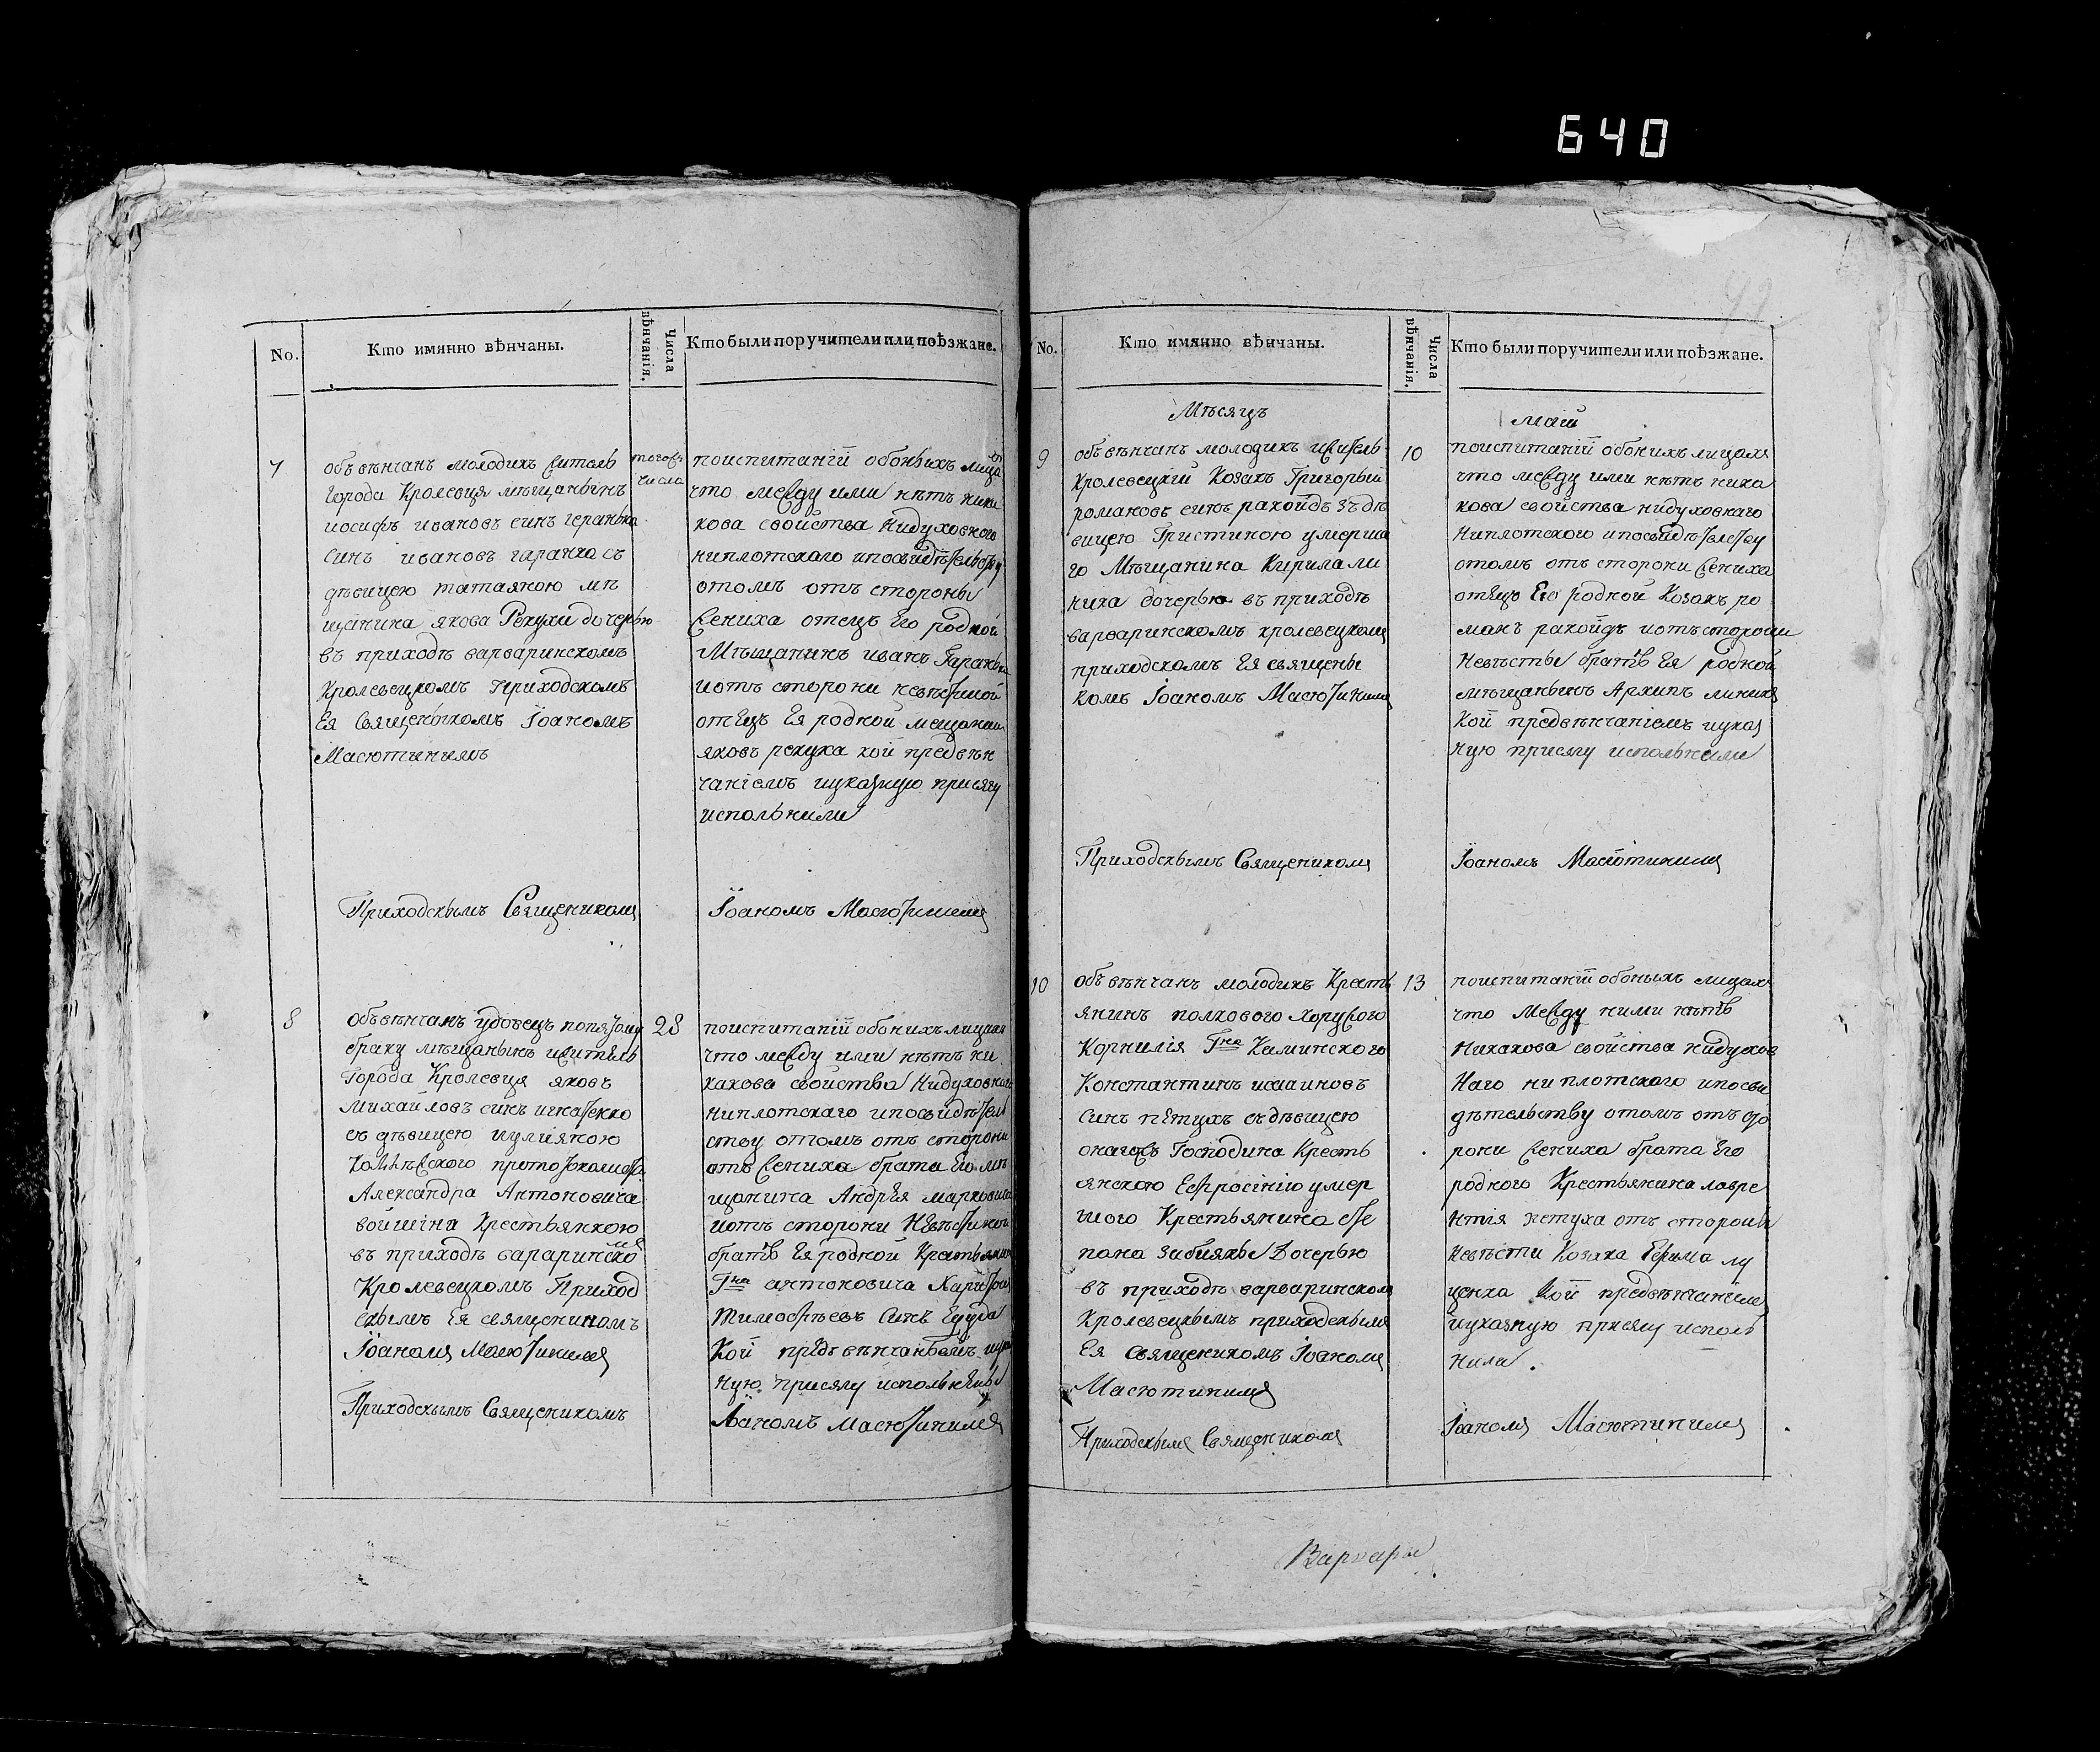 640
No.
Кто имянно вѣнчаны.
Числа вѣнчанія.
Кто были поручители или поѣзжане.
7
объ вѣнчанъ молодикъ житель
города Кролевця мѣщанынъ
иосифъ ивановъ синъ геранька
Синъ ивановъ гаранка съ
дѣвицею татаяною мѣ
щанина якова Рекухи дочерью
въ приходѣ варваринскомъ
Кролевецкомъ приходскомъ
Ея Священыкомъ Іоаномъ
Масютинимъ
тогожъ
числа
поиспитаніи обоныхъ лицахъ
что между ими нѣтъ ника
кова свойства нидуховного
ниплотскаго ипосвидѣтельству
отомъ отъ стороны
жениха отецъ Его родной
Мѣщанинъ иванъ Гаранька
иотъ сторони невѣстиной
отецъ Ея родной мещанин
яковъ рекуха кой предвѣн
чаніемъ иуказную присягу
испольнили
Приходскымъ Священикомъ
Іоаномъ Масютинимъ
8
Объвѣнчанъ удовецъ попятому
браку мѣщанынъ житель
города Кролевця яковъ
Михайловъ синъ игнатенко
съ дѣвицею иулияною
протоколиста
Александра Антоновича
Крестьянкою
въ приходѣ вараринскомъ
Кролевецкомъ Приход
скымъ Ея священикомъ
Іоаномъ Масютинимъ
28
поиспитаніи обонихъ лицахъ
что между ими нѣтъ ни
какова свойства Нидуховного
ниплотскаго ипосвидѣтель
ству отомъ отъ сторони
отъ жениха брата Его мѣ
щанина Андрѣя марковича
иотъ сторони Невѣстиной
братъ Ея родной Крестьянин
Гна антоновича Харитон
Тимофѣевъ Синъ
Кой предъ вѣнчаньемъ иуказ
ную присягу испольнены
Приходскымъ Священикомъ
Іоаномъ Масютинимъ
No.
Кто имянно вѣнчаны.
Числа вѣнчанія.
Кто были поручители или поѣзжане.
Мѣсяцъ
маій
9
объ вѣнчанъ молодикъ ижитель
Кролевецкій Козакъ Григорьий
романовъ синъ ракоидъ зъ дѣ
вицею Гристиною умерша
го Мѣщанина Кирила ли
ника дочерью въ приходѣ
варваринскомъ кролевецкомъ
приходскомъ Ея священы
комъ Іоаномъ Масютинимъ
10
поиспитаніи обонихъ лицахъ
что между ими нѣтъ ника
кова свойства нидуховнаго
Ниплотского ипосвидѣтелству
отомъ отъ сторони жениха
отецъ Его родной Козакъ ро
манъ ракойдъ иотъ сторони
Невѣсты братъ Ея родной
мѣщанынъ Архипъ линикъ
Кой предвѣнчаніемъ иуказ
ную присягу испольнили
Приходскымъ Священикомъ
Іоаномъ Масютинимъ
10
объ вѣнчанъ молодикъ Кресть
янинъ полкового хоружого
Корнилія Гна Каминского
Константинъ
синъ пѣтухъ съ дѣвицею
онагожъ Господина Кресть
янкою Ефросініею умер
шого Крестьянина Сте
пана зибияки Дочерью
въ приходѣ варваринском
Кролевецкымъ приходскымъ
Ея священикомъ Іоаномъ
Масютинимъ
13
поиспитаніи обоныхъ лицахъ
что между ними нѣтъ
Никакова свойства нидухов
Наго ни плотского ипосви
дѣтельству отомъ отъ сто
рони жениха брата Его
родного Крестьянина лавре
нтія петуха отъ стороны
Невѣсти Козака Ефима лу
ценка Кой предвѣнчаніемъ
иуказную присягу исполь
нили.
Приходскымъ Священикомъ
Іоаномъ Масютинимъ
Варвары